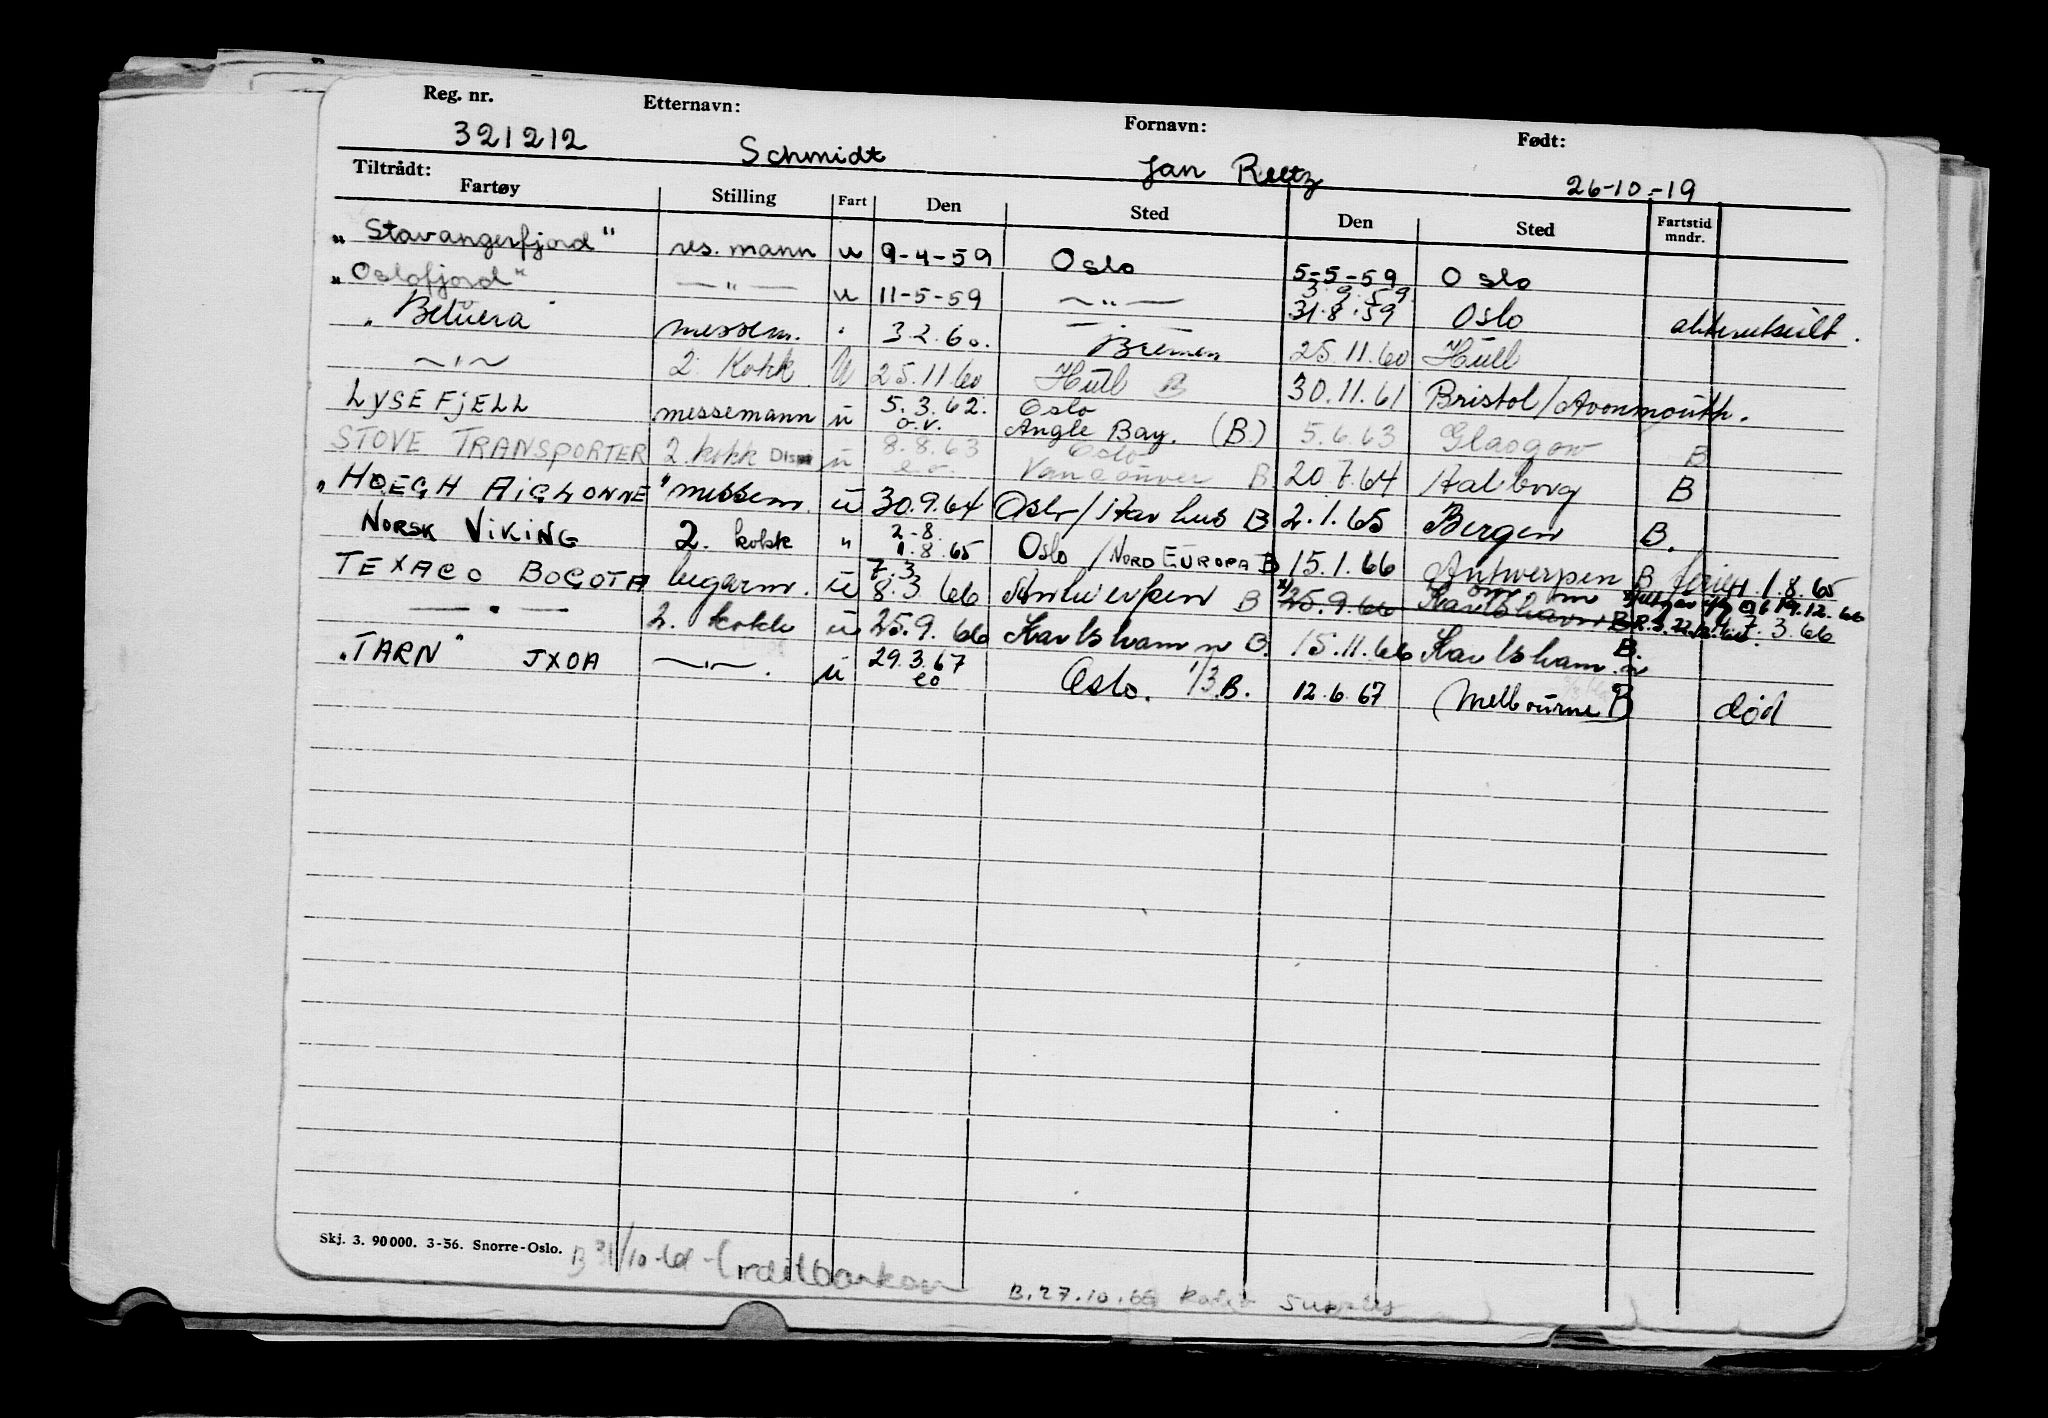 Reg. nr. Etternavn: Fornavn: Født:
321212 Schmidt Jan Reetz 26-10-19
Tiltrådt:
Fartøy Stilling Fart Den Sted Den Sted Fartstid mndr.
„Stavangerfjord" res. mann u 9-4-59 Oslo 5-5-59 Oslo
„Oslofjord" —"— u 11-5-59 —"— 3.9.59 31.8.59 Oslo
Betuera messem. 3.2.60. Bremen 25.11.60 Hull
—"— 2. Kokk U 25.11.60 Hull B 30.11.61 Bristol/Avonmouth.
LYSEFJELL messemann u 5.3.62. o.v. Oslo Angle Bay. (B.) 5.6.63 Glasgow B
STOVE TRANSPORTER 2. kokk u 8.8.63 Oslo Vancouver B 20.7.64 Aalborg B
„HØEGH AIGLONNE" messem. u 30.9.64 Oslo/Aarhus B 2.1.65 Bergen B.
NORSK VIKING 2. kokk " 2-8. 1.8.65 Oslo /NORD EUROPA B 15.1.66 Antwerpen B 1.8.65
TEXACO BOGOTA u 7.3 8.3.66 Antwerpen B 25.9.66 Karlshamn B 7.3.66
—"— 2. kokk u 25.9.66 Karlshamn B. 15.11.66 Karlshamn B.
„TARN" JXOA —"—. u 29.3.67 eo Oslo. 1/3 B. 12.6.67 Melbourne B død
Skj. 3. 90000. 3-56. Snorre-Oslo.